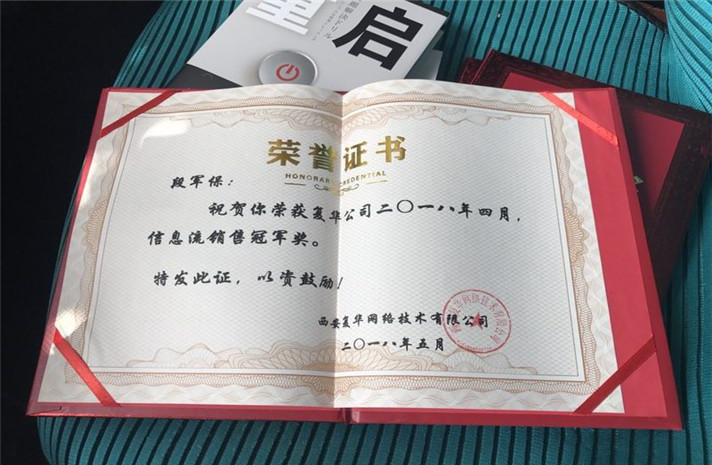 重启
荣誉证书
HONORARY CREDENTIAL
段军保：
祝贺你荣获复华公司二〇一八年四月，
信息流销售冠军奖。
特发此证，以资鼓励！
西安复华网络技术有限公司
二〇一八年五月